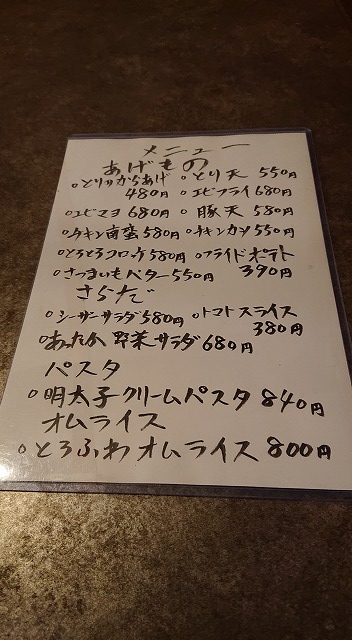 メニュー
あげもの
○とりのからあげ 480円 ○とり天 550円
○エビマヨ 680円 ○エビフライ 680円
○チキン南蛮 580円 ○豚天 580円
○とろとろコロッケ 580円 ○チキンカツ 550円
○さつまいもバター 550円 ○フライドポテト 390円
さらだ
○シーザーサラダ 580円 ○トマトスライス 380円
○あったか野菜サラダ 680円
パスタ
○明太子クリームパスタ 840円
オムライス
○とろふわオムライス 800円